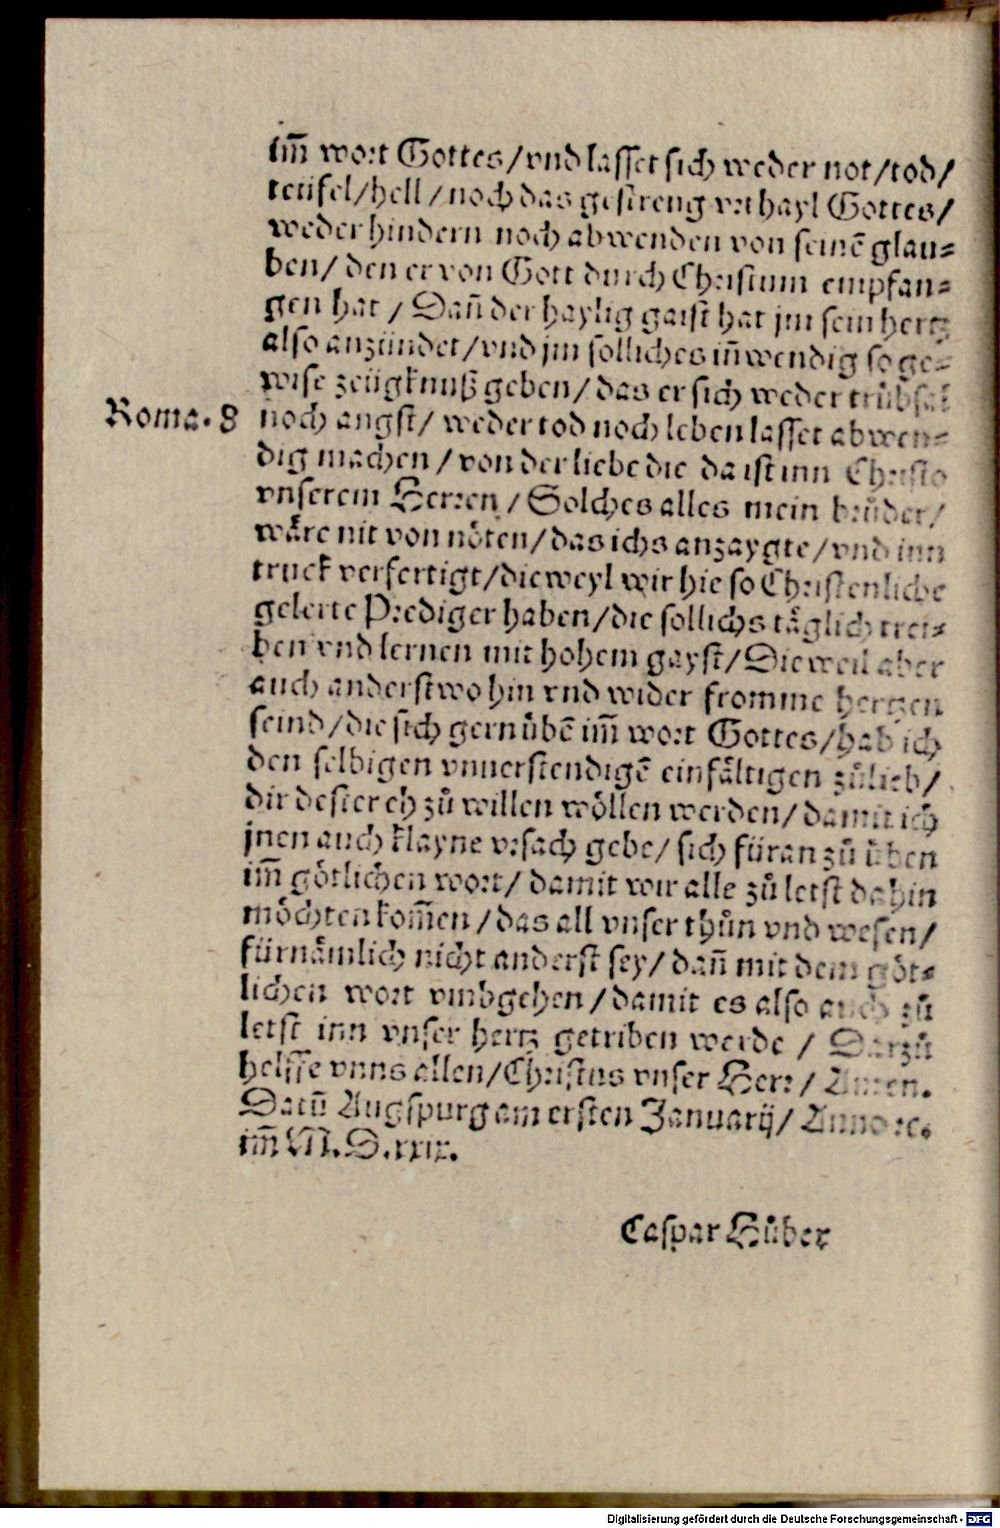 im̃ wort Gottes/vnd lasset sich weder not/tod/
teufel/hell/noch das gestreng vrthayl Gottes/
weder hindern noch abwenden von seinẽ glau⸗
ben/den er von Gott durch Christum empfan⸗
gen hat/Dañ der haylig gaist hat jm sein hertz
also anzündet/vnd jm solliches iñwendig so ge⸗
wise zeügknuß geben/das er sich weder trübsal
Roma. 8 noch angst/weder tod noch leben lasset abwen⸗
dig machen/von der liebe die da ist inn Christo
vnserem Herren/Solches alles mein brůder/
wåre nit von nöten/das ichs anzaygte/vnd inn
truck verfertigt/dieweyl wir hie so Christenliche
gelerte Prediger haben/die sollichs tåglich trei⸗
ben vnd lernen mit hohem gayst/Die weil aber
auch anderstwo hin vnd wider fromme hertzen
seind/die sich gern übẽ im̃ wort Gottes/hab ich
den selbigen vnuerstendigẽ einfåltigen zůlieb/
dir dester eh zů willen wöllen werden/damit ich
jnen auch klayne vrsach gebe/sich füran zů üben
im̃ götlichen wort/damit wir alle zů letst dahin
möchten kom̃en/das all vnser thůn vnd wesen/
fürnåmlich nicht anderst sey/dañ mit dem göt⸗
lichen wort vmbgehen/damit es also auch zů
letst inn vnser hertz getriben werde/Darzů
helffe vnns allen/Christus vnser Herr/Amen.
Datũ Augspurg am ersten Januarij/Anno ꝛc.
im̃ M.D.xxix.
Caspar Hůber
Digitalisierung gefördert durch die Deutsche Forschungsgemeinschaft - DFG